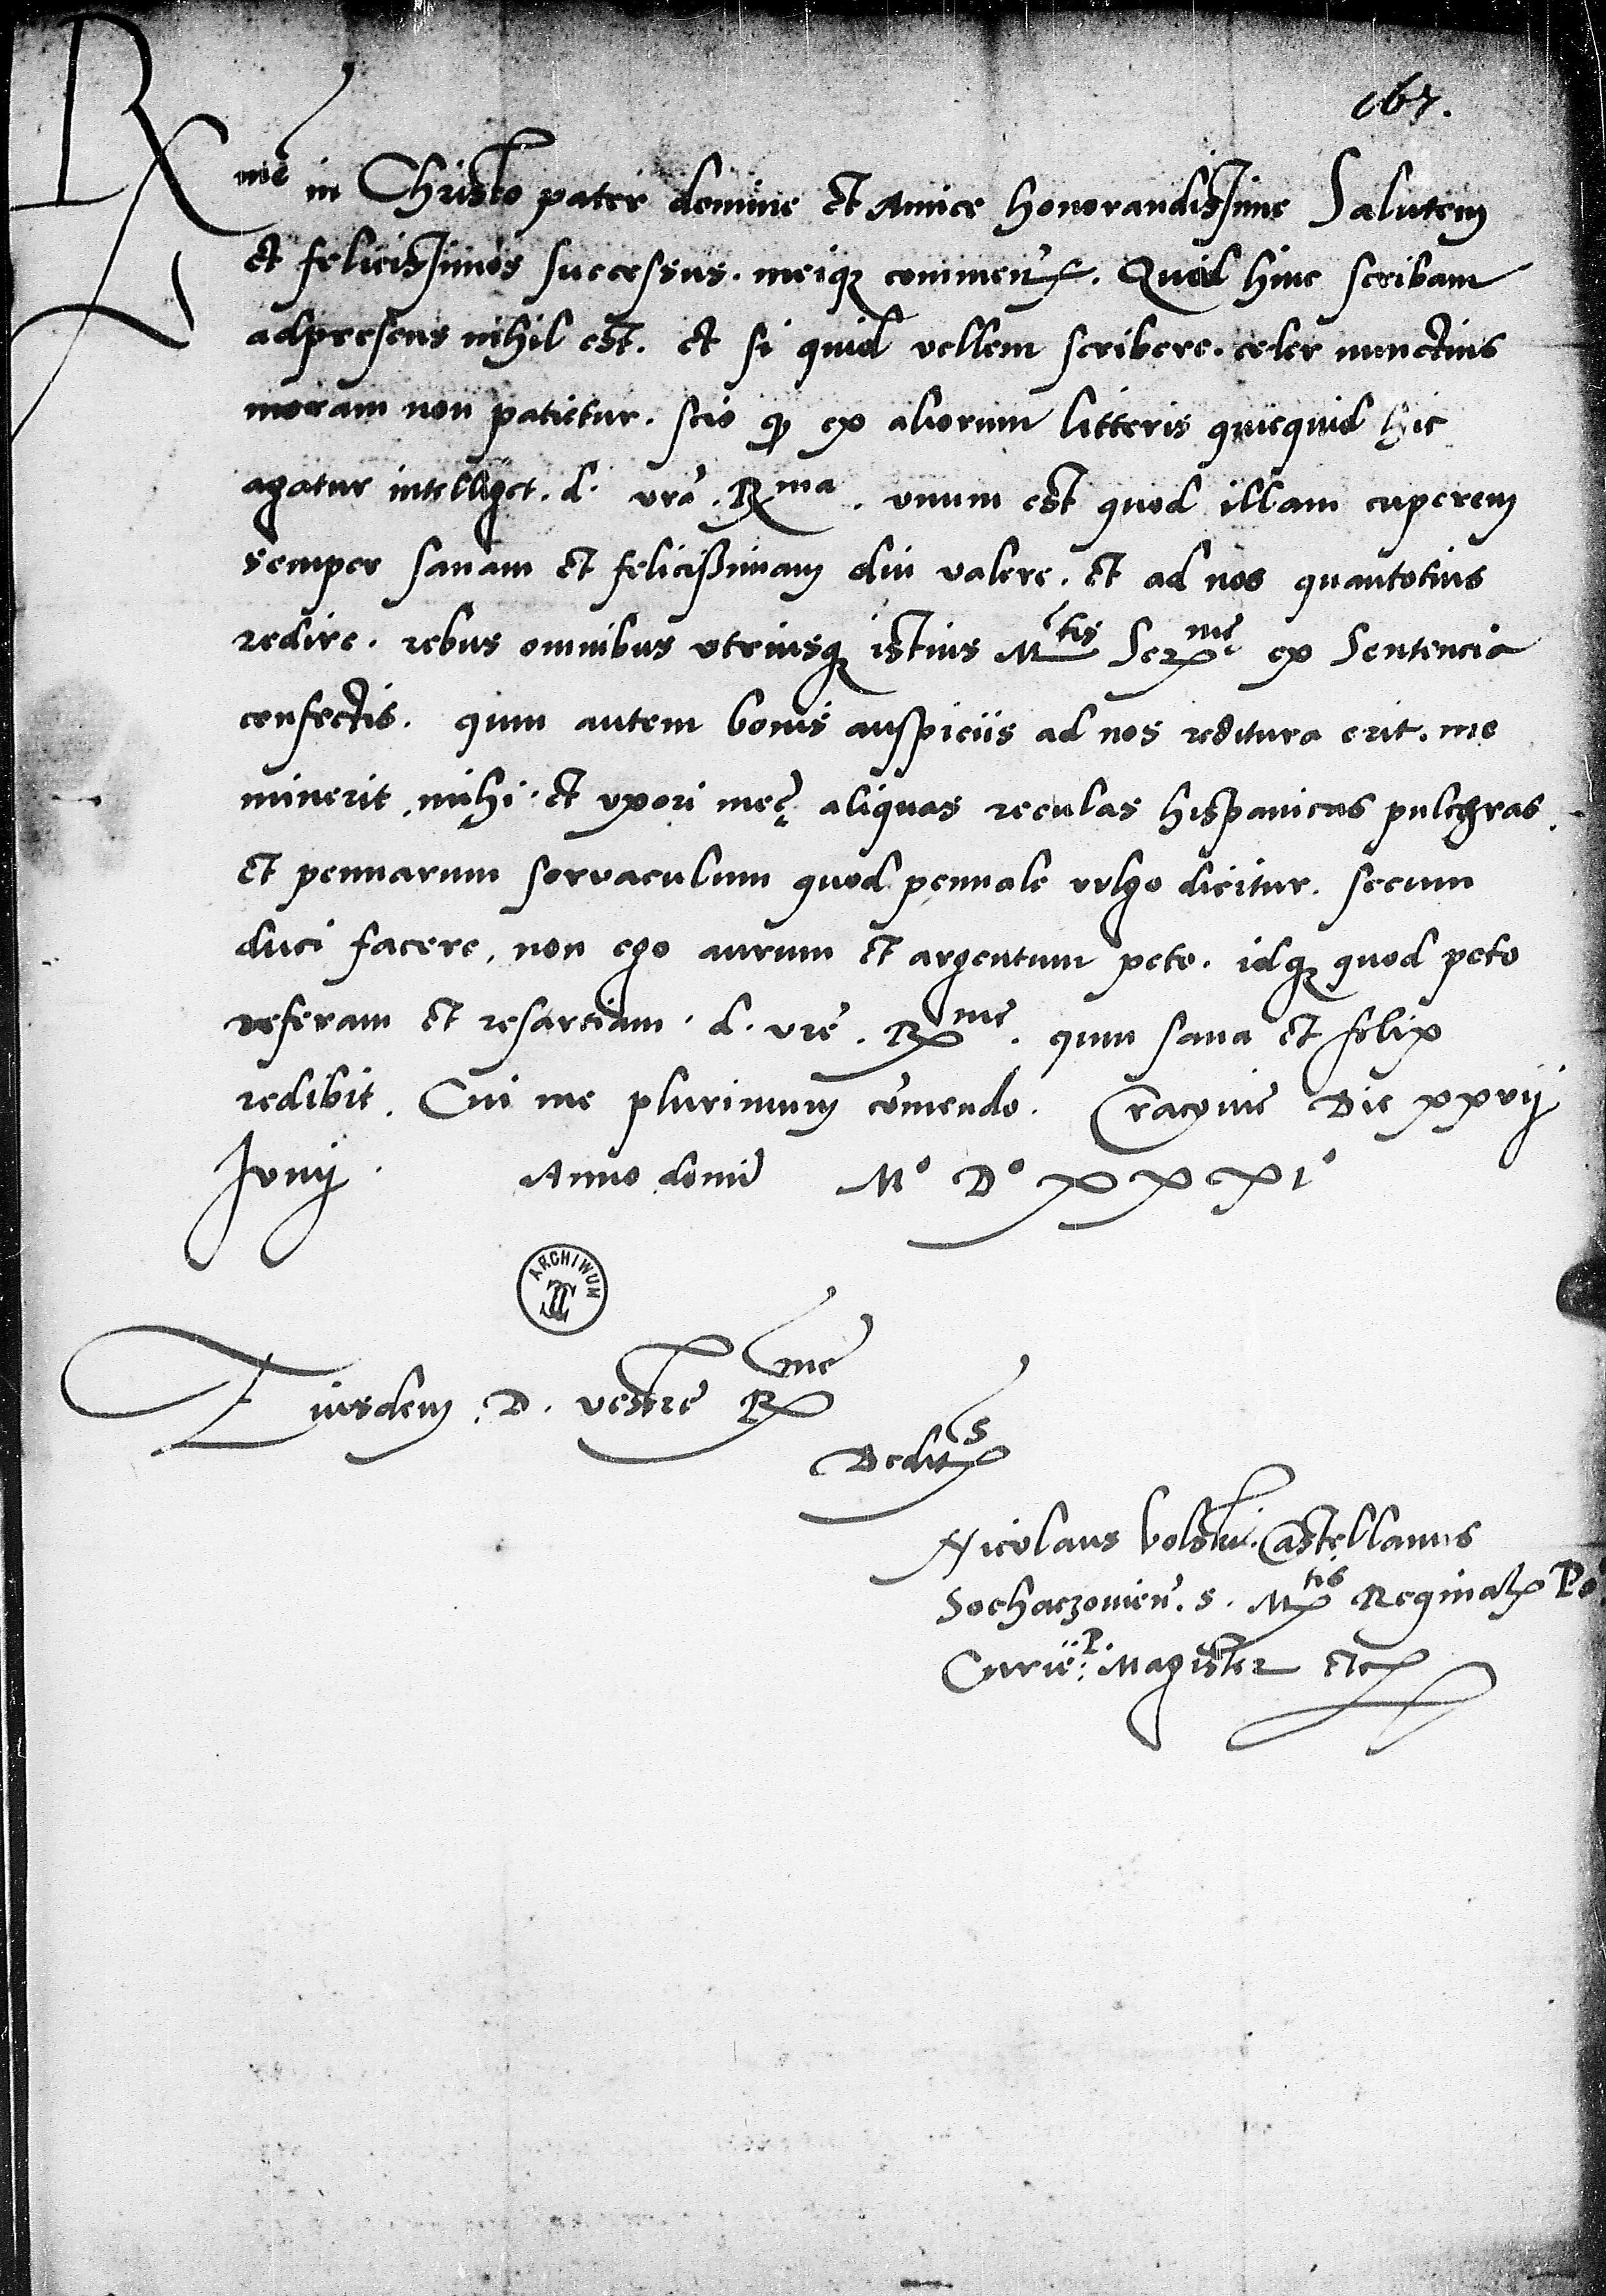 167.
Rme in Christo pater domine et Amice honorandissime Salutem
et felicissimos successus. meiq; commen. Quid hinc scribam
adpresens nihil est. et si quid vellem scribere. celer nunctius
moram non patietur. scio q ex aliorum litteris quicquid hic
agatur intelliget. d. vra. Rma. vnum est quod illam cuperem
semper sanam et felicißimam diu valere. et ad nos quantotius
redire. rebus omnibus vtriusq; istius Mtis Serme ex Sentencia
confectis. quum autem bonis auspiciis ad nos reditura erit. me
minerit, mihi. et vxori meę aliquas reculas hispanicas pulchras.
et pennarum servaculum quod pennale vulgo dicitur. secum
duci facere, non ego aurum et argentum peto. idq; quod peto
referam et resartiam. d. vre. Rme. quum sana et felix
redibit. Cui me plurimum comendo. Cracovie Die xxvij
Junij. Anno domi Mo Do xxxio
ARCHIWUM
Eiusdem. D. vestre Rme
Deditus
Nicolaus Volski. Castellanus
Sochaczovien. s. Mtis Reginal Po.
Curie. Magister etc